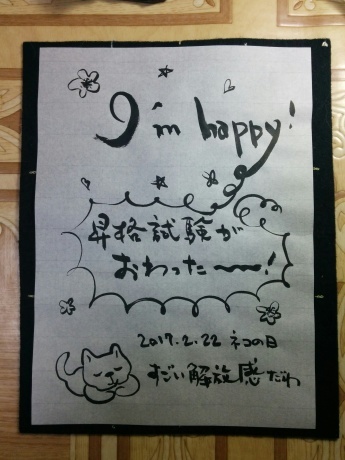 I'm happy!
昇格試験が
おわった〜〜!
2017.2.22 ネコの日
すごい解放感だわ